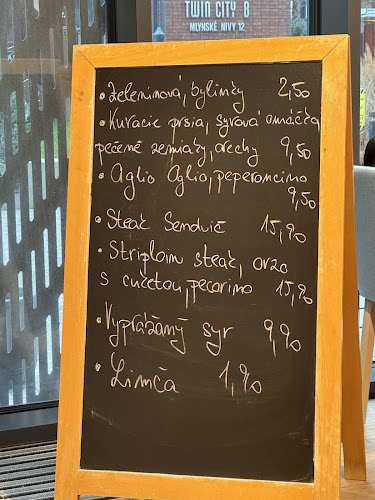 TWIN CITY B
MLYNSKÉ NIVY 12
• Zeleninová, bylinky 2,50
• Kuracie prsia, syrová omáčka,
pečené zemiaky, orechy 9,50
• Aglio Aglio, peperoncino
9,50
• Steak Sendvič 15,90
• Striploin steak, orzo
s cuketou, pecorino 15,90
• Vyprážaný syr 9,90
• Limča 1,90